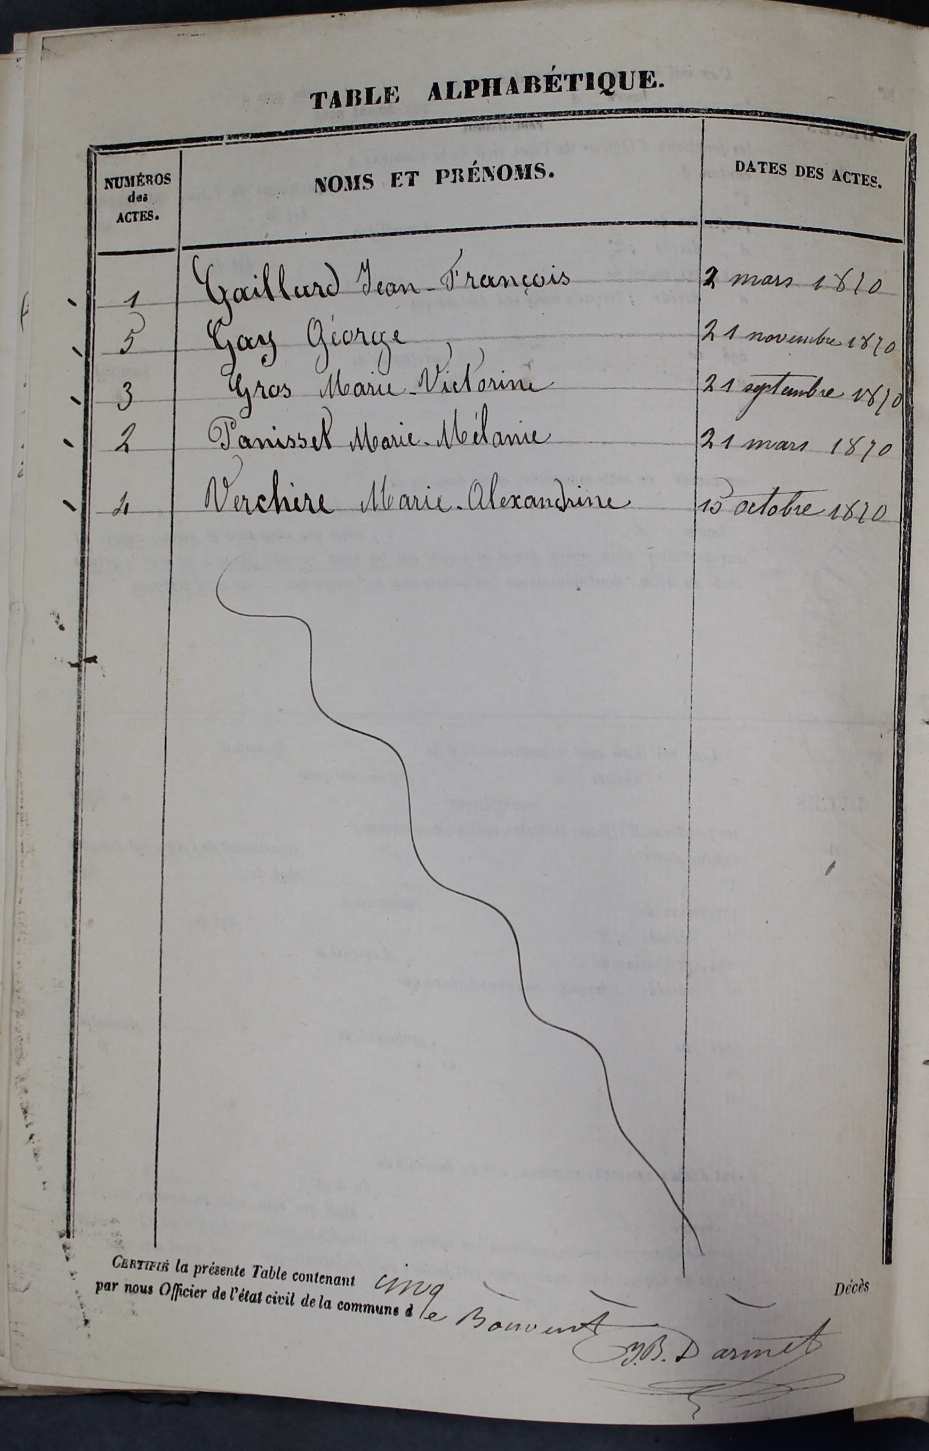 TABLE ALPHABÉTIQUE.
NUMÉROS des ACTES. NOMS ET PRÉNOMS. DATES DES ACTES.
1 Gaillard Jean-François 2 mars 1870
5 Gay George 21 novembre 1870
3 Gros Marie-Victorine 21 septembre 1870
2 Panisset Marie-Mélanie 21 mars 1870
4 Verchère Marie-Alexandrine 15 octobre 1870
CERTIFIÉ la présente Table contenant cinq Décès
par nous Officier de l'état civil de la commune de Bouvent
J.B. Darmet